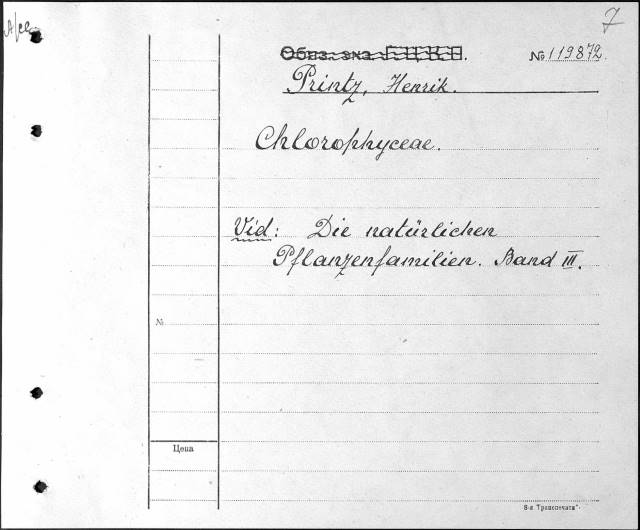 7
Обяз. экз. Г.Ц.К.П.
№ 119872.
Printz, Henrik.
Chlorophyceae.
Vid: Die natürlichen
Pflanzenfamilien. Band III.
№
Цена
8-я "Транспечати".